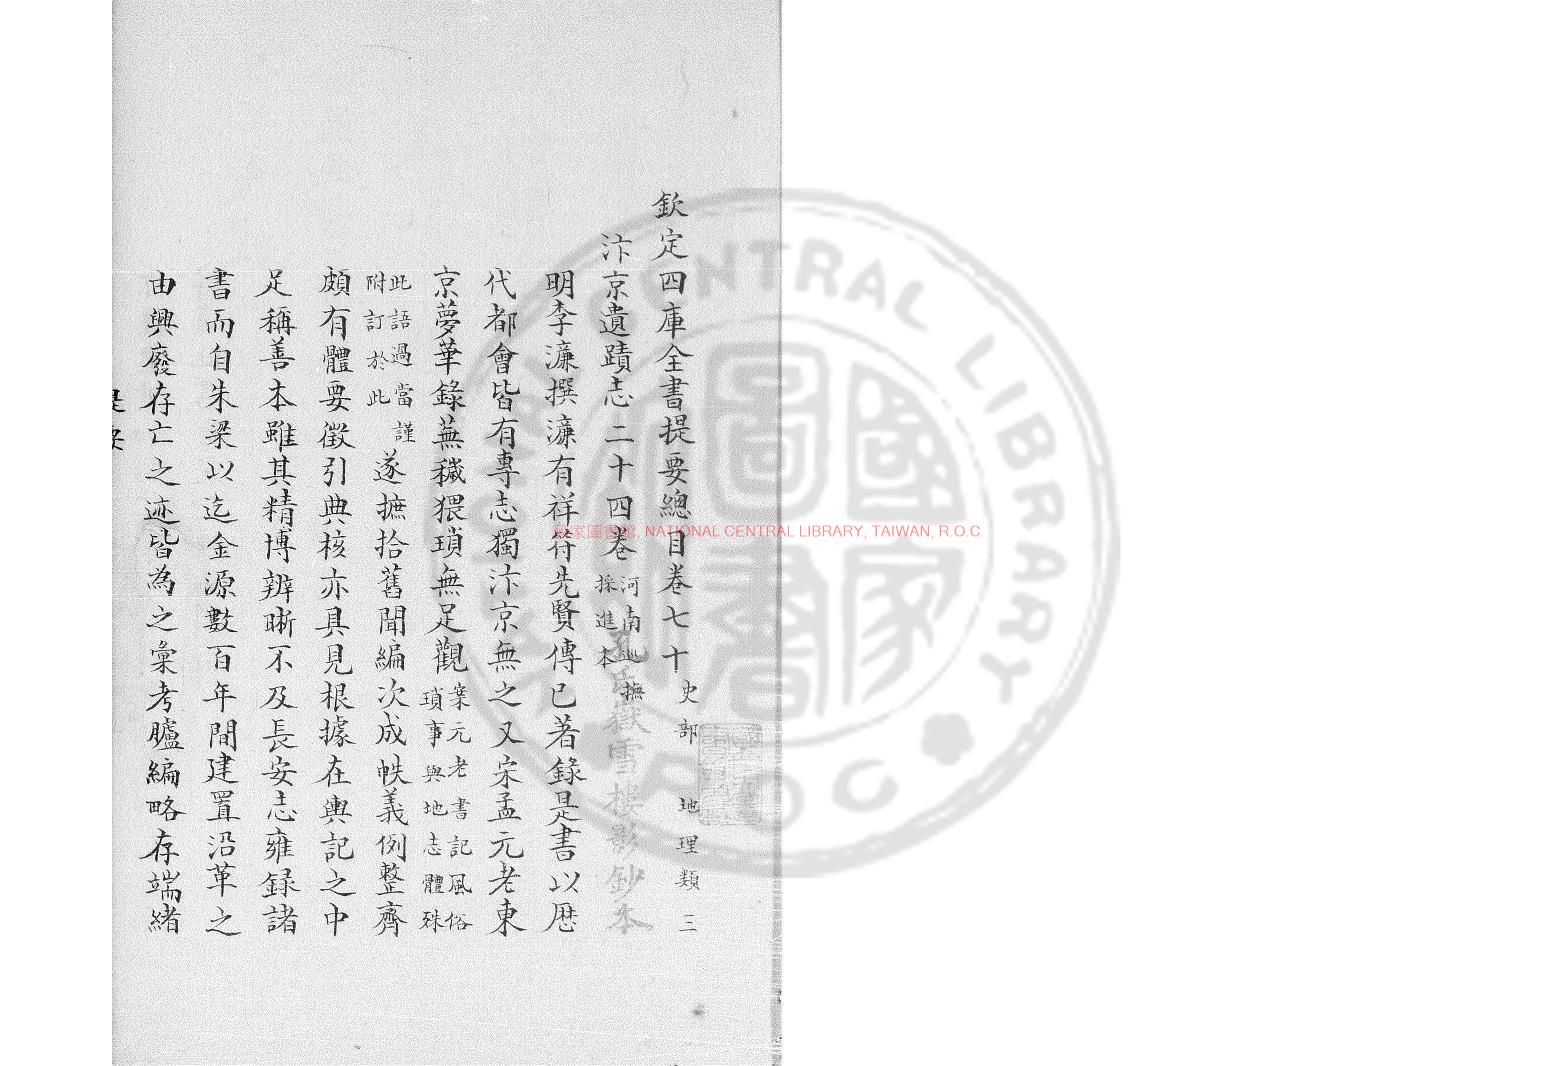 欽定四庫全書提要總目卷七十 史部 地理類三
汴京遺蹟志二十四卷 河南巡撫採進本
孔氏嶽雪樓影鈔本
明李濂撰濂有祥符先賢傳已著錄是書以歷
代都會皆有專志獨汴京無之又宋孟元老東
京夢華錄蕪穢猥瑣無足觀 案元老書記風俗瑣事與地志體殊
此語過當謹附訂於此 遂摭拾舊聞編次成帙義例整齊
頗有體要徵引典核亦具見根據在輿記之中
足稱善本雖其精博辨晰不及長安志雍録諸
書而自朱梁以迄金源數百年間建置沿革之
由興廢存亡之迹皆為之彙考臚編略存端緒
提要
國家圖書館, NATIONAL CENTRAL LIBRARY, TAIWAN, R.O.C.
NATIONAL CENTRAL LIBRARY
R.O.C.
國家圖書